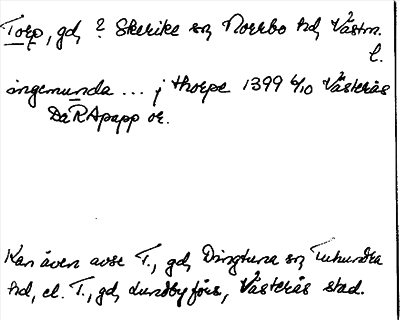 Torp, gd, ? Skerike sn, Norrbo hd, Västm.
l.
ingemunda ... j thorpe 1399 6/10 Västerås
Da RApapp or.
Kan även avse T., gd, Dingtuna sn, Tuhundra
hd, el. T., gd, Lundby förs, Västerås stad.